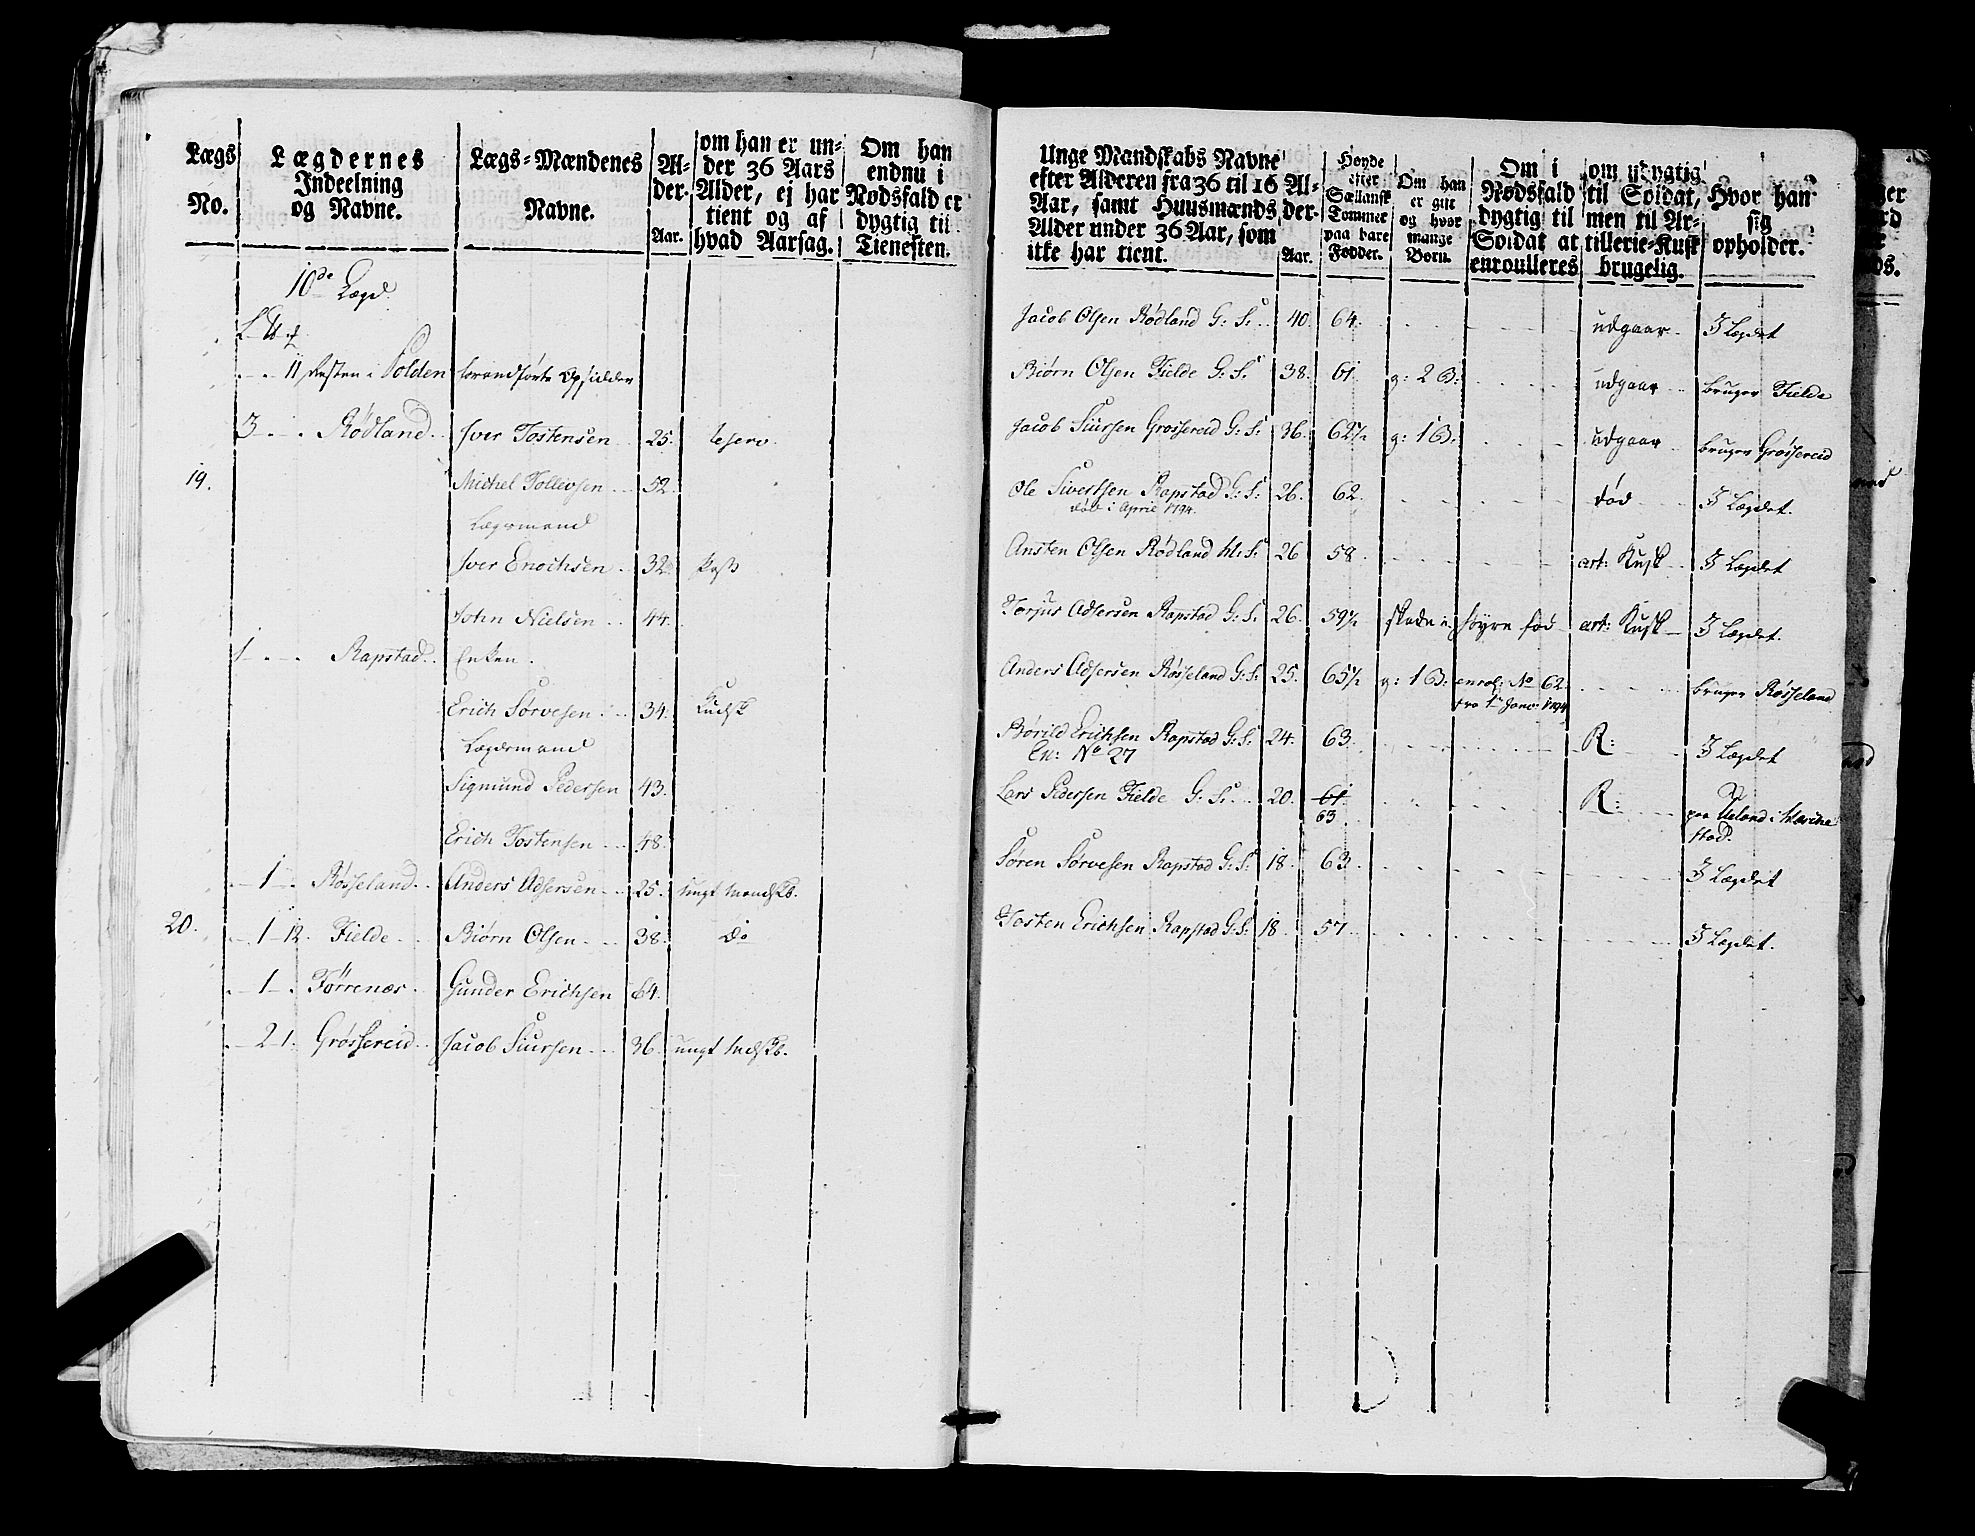 Lægs
No.
Lægdernes
Indeelning
og Navne.
Lægs-Mændenes
Navne.
Al-
der.
Aar.
om han er un-
der 36 Aars
Alder, ej har
tient og af
hvad Aarsag.
Om han
endnu i
Nødsfald er
dygtig til
Tienesten.
10de Lægd.
11 Resten i Polden foranførte Opsidder
3 Rødland Iver Tostensen 25. reserv.
19. Michel Tollevsen 52.
Lægsmand
Iver Enochsen 32
John Nielsen 44.
1 Rapstad Enken.
Erich Sørvesen 34. Kudsk
Lægdsmand
Sigmund Pedersen 43.
Erich Tostensen 48.
1 Røsseland Anders Adsersen 25. ungt Mandskb.
20. 1 12. Fielde Biørn Olsen 38. Do
1 Tørrenær Gunder Erichsen 64.
2 1. Grøssereid Jacob Siursen 36. ungt Mdskb.
Unge Mandskabs Navne
efter Alderen fra 36 til 16
Aar, samt Huusmænds
Alder under 36 Aar, som
ikke har tient.
Al-
der.
Aar.
Høyde
efter
Sællansk
Tommer
paa bare
Fødder.
Om han
er gift
og hvor
mange
Børn.
Om i
Nødsfald
dygtig til
Soldat at
enroulleres
om udygtig
til Soldat,
men til Ar-
tillerie-Kusk
brugelig.
Hvor han
sig
opholder.
Jacob Olsen Rødland G: S: 40. 64. udgaar I Lægdet
Biørn Olsen Fielde G: S: 38. 61. g: 2 B: udgaar bruger Fielde
Jacob Siursen Grossereid G: S: 36. 62½ g: 1 B: udgaar bruger Grøssereid
Ole Sivertsen Rapstad G: S: 26. 62. død I Lægdet.
døde i April 1794.
Ansten Olsen Rødland H: S: 26 58 art: Kusk I Lægdet
Torjus Adsersen Rapstad G: S: 26. 59½ skade i høyre fod art: Kusk I Lægdet.
Anders Adsersen Røsseland G: S: 25. 65½ g: 1 B: enrol: No 62. bruger Røsseland
fra 1te Janv: 1794
Børild Erichsen Rapstad G: S: 24. 63. R: I Lægdet
En: No 27
Lars Pedersen Fielde G: S: 20. 61 R: paa Ueland i
63 stad.
Søren Sørvesen Rapstad G: S: 18. 63. I Lægdet
Tosten Erichsen Rapstad G: S: 18. 57. I Lægdet.